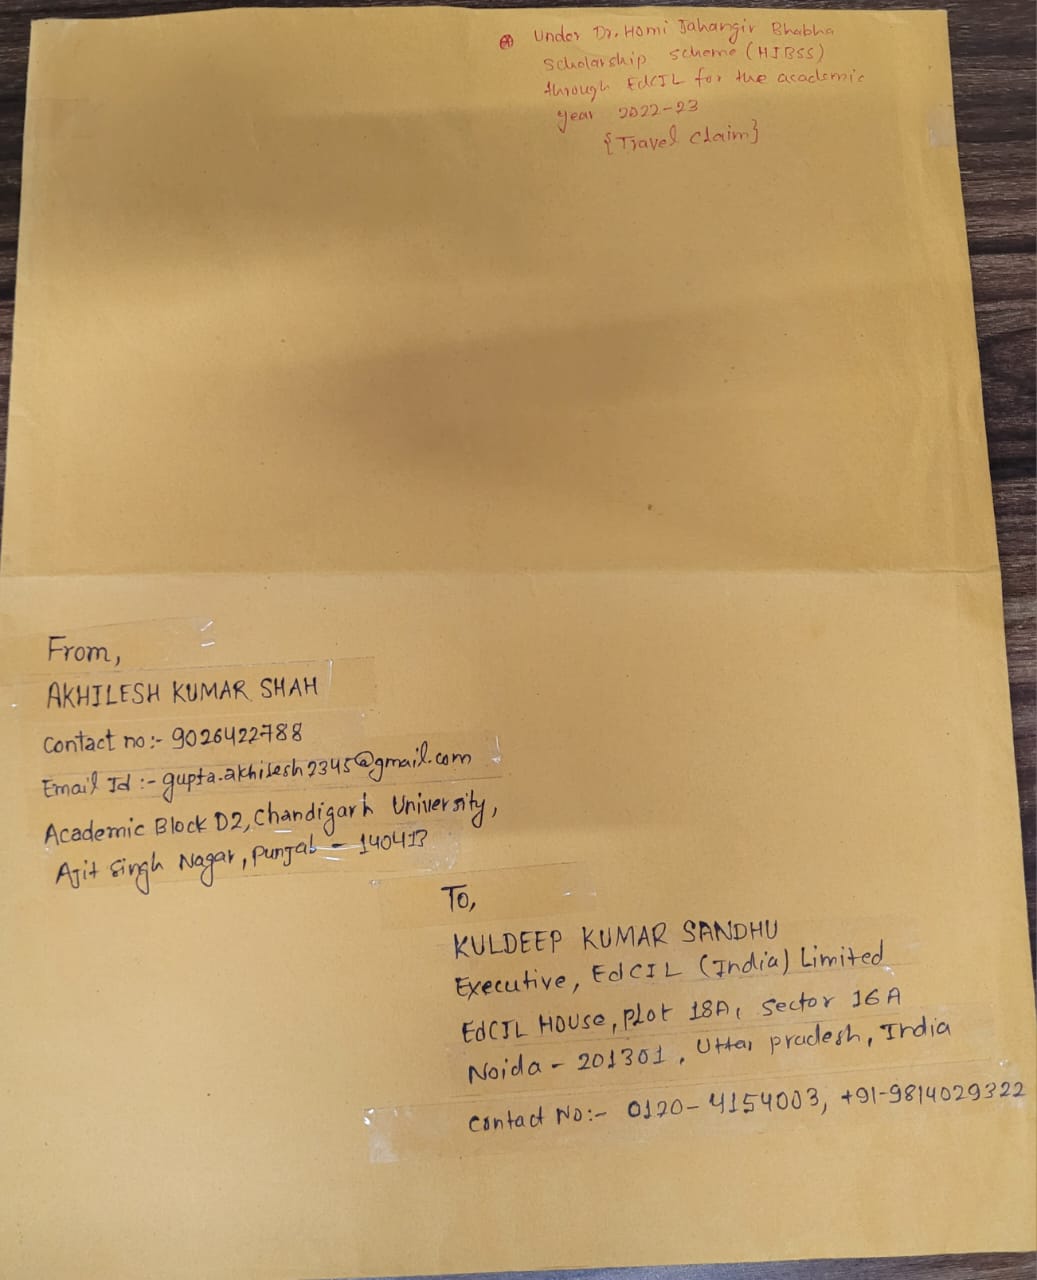 Under Dr. Homi Jahangir Bhabha
Scholarship scheme (HJBSS)
through EdCIL for the academic
year 2022-23
{Travel claim}
From,
AKHILESH KUMAR SHAH
Contact no:- 9026422788
Email Id :- gupta.akhilesh2345@gmail.com
Academic Block D2, Chandigarh University,
Ajit Singh Nagar, Punjab - 140413
To,
KULDEEP KUMAR SANDHU
Executive, EdCIL (India) Limited
EdCIL House, plot 18A, Sector 16A
Noida - 201301, Uttar pradesh, India
Contact No:- 0120-4154003, +91-9814029322